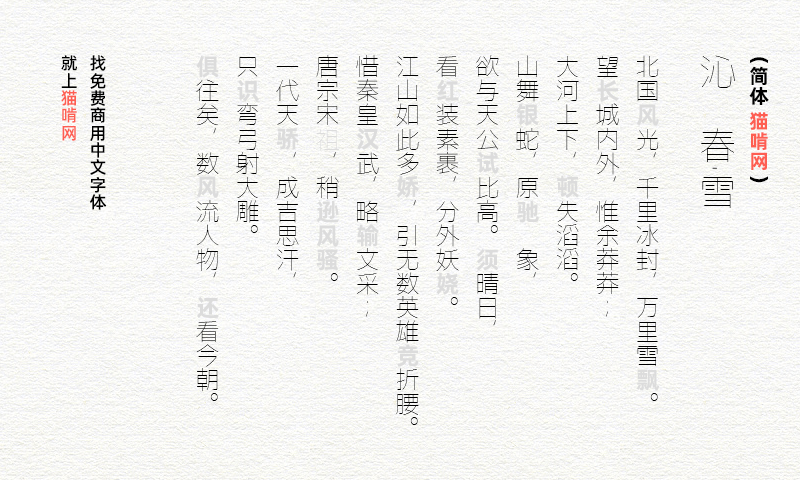 (简体 猫啃网)
沁 春·雪
北国风光，千里冰封，万里雪飘。
望长城内外，惟余莽莽；
大河上下，顿失滔滔。
山舞银蛇，原驰 象，
欲与天公试比高。须晴日，
看红装素裹，分外妖娆。
江山如此多娇，引无数英雄竞折腰。
惜秦皇汉武，略输文采；
唐宗宋祖，稍逊风骚。
一代天骄，成吉思汗，
只识弯弓射大雕。
俱往矣，数风流人物，还看今朝。
找免费商用中文字体
就上猫啃网